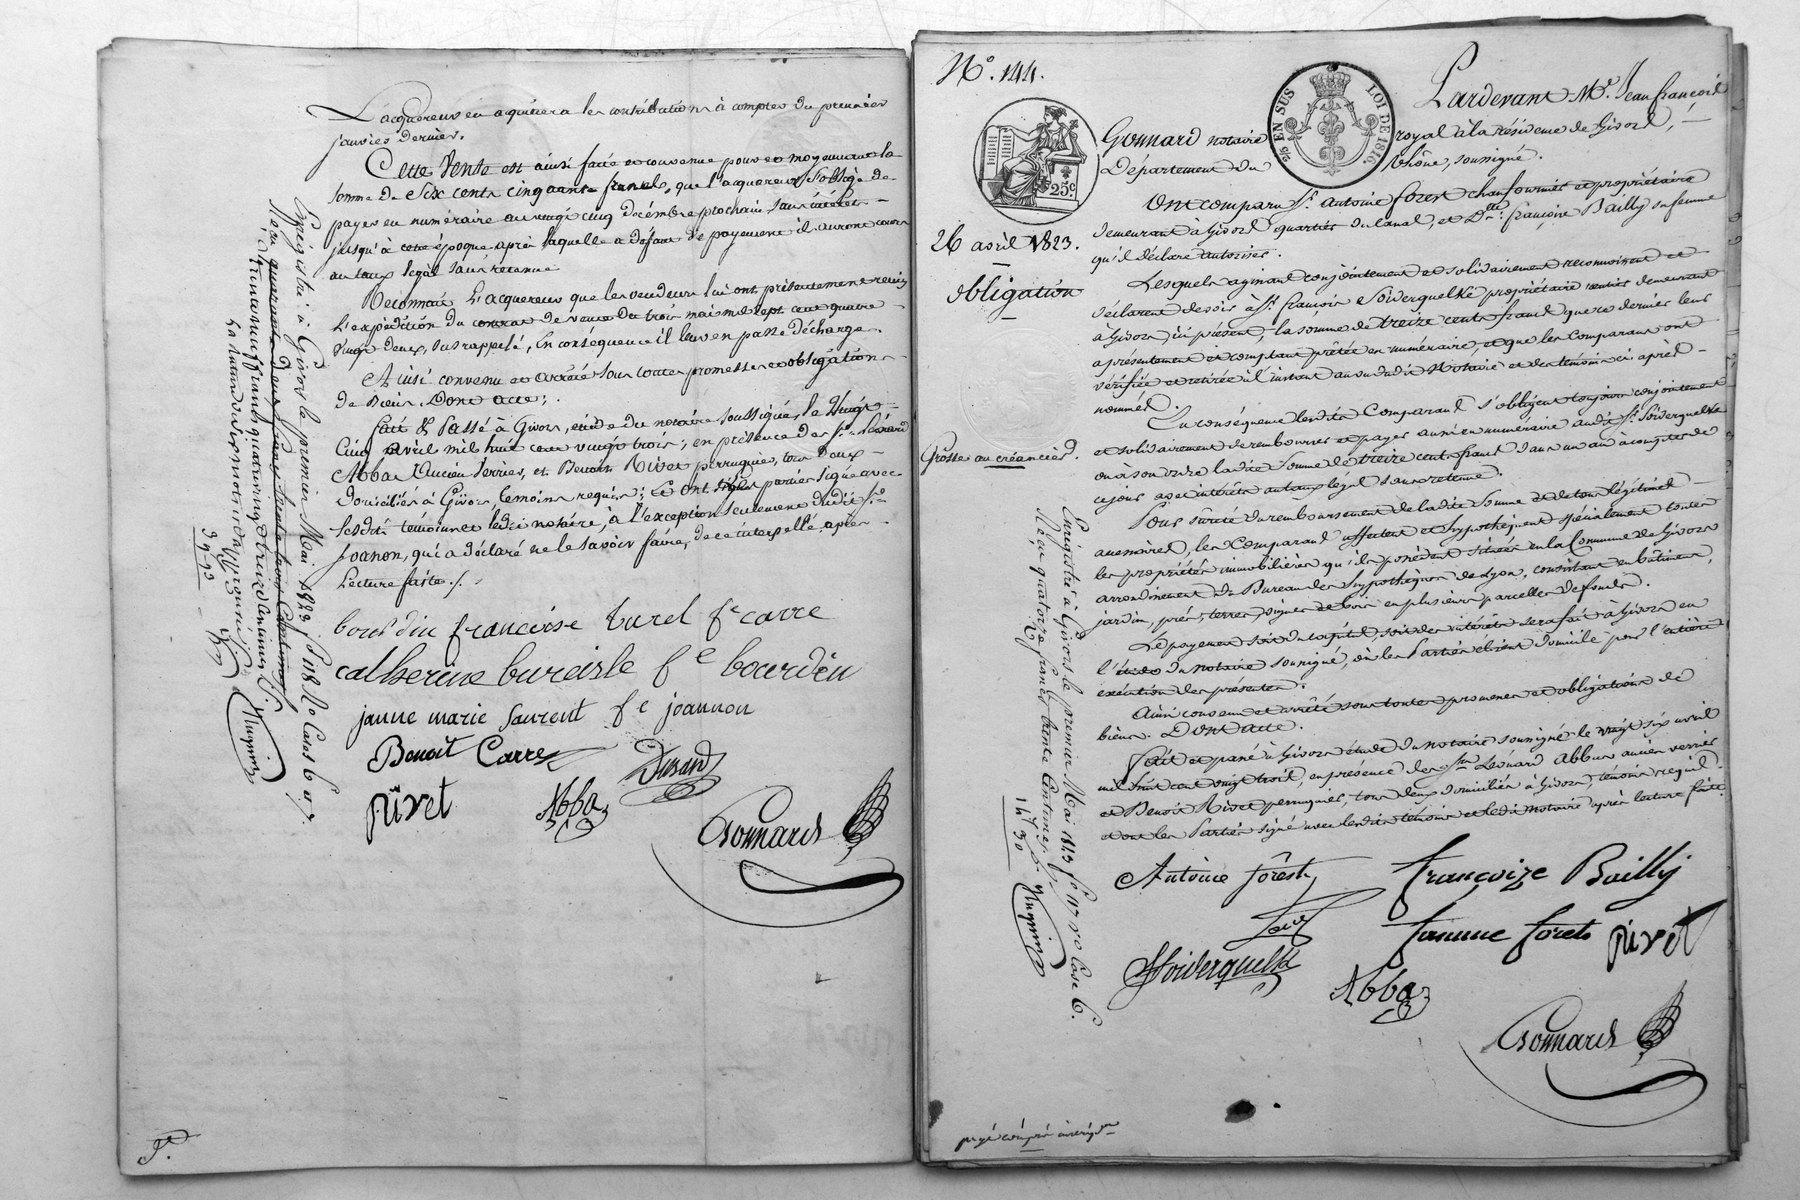 L'acquéreur en acquittera les contributions à compter du premier
janvier dernier.
Cette Vente est ainsi faite et convenue pour et moyennant la
somme de Six cents cinquante francs, que l'acquéreur s'oblige de
payer en numéraire au vingt cinq décembre prochain sans intérêts
jusqu'à cette époque après laquelle a défaut de payement il auront cours
au taux légal sans retenue
Reconnait l'acquéreur que les vendeurs lui ont présentement remis
l'expédition du contrat de vente du trois mai mil sept cent quatre
vingt deux, sus rappelé, En conséquence il leur en passe décharge.
Ainsi convenu et arrêté sous toutes promesses et obligations
de Biens. Dont acte;
fait & Passé à Givors, étude du notaire soussigné, le Vingt
Cinq avril mil huit cent vingt trois; en présence des Srs Léonard
Abba ancien verrier, et Benoit Rivet perruquier, tous deux
domiciliés à Givors témoins requis; et ont les parties signé avec
lesdits témoins et ledit notaire, à l'exception seulement dudit Sr
Joanon, qui a déclaré ne le savoir faire, de ce interpellé, après
Lecture faite ./.
bourdin francoise turel fe carre
catherine bureisle fe bourdin
janne marie laurent fe joannon
Benoit Carre
Durand
Rivet
Abba
Gonnard
Enregistré à Givors le premier Mai 1823 fo 118 Ro Cases 6 et 7.
Reçu
No. 144.
25 EN SUS LOI DE 1816
25c
26 avril 1823.
obligation
Grosse au créancier.
Pardevant Me. Jean françois
Gonnard notaire royal à la résidence de Givors,
Département du Rhône, soussigné.
Ont comparu Sr. antoine forest chaufournier et propriétaire
demeurant à Givors quartier du Canal, et Dme. françoise Bailly sa femme
qu'il déclare autoriser.
Lesquels agissant conjointement et solidairement reconnoissent et
déclarent devoir à Sr. françois Soiderquelke propriétaire rentier demeurant
à Givors, ici présent, la somme de treize cents francs que ce dernier leur
a présentement et comptant prêtée en numéraire, et que les Comparans ont
vérifiée et retirée à l'instant au vu dudit Notaire et des témoins ci-après
nommés.
En conséquence lesdits Comparans s'obligent toujours conjointement
et solidairement de rembourser et payer aussi en numéraire audit Sr. Soiderquelke
ou à son ordre ladite Somme de treize cents francs dans un an à compter de
ce jour avec intérêts au taux légal sans retenue.
Pour sûreté du remboursement de ladite Somme et de tous légitimes
accessoires, les Comparans affectent et hypothèquent spécialement toutes
les propriétés immobilières qu'ils possèdent situées en la Commune de Givors
arrondissement du Bureau des hypothèques de Lyon, consistant en bâtimens,
jardin, prés, terres, vignes et bois en plusieurs parcelles de fonds.
Le payement soit du capital, soit des intérêts sera fait à Givors en
l'étude du notaire soussigné, où les Parties élisent domicile pour l'entière
exécution des présentes.
Ainsi convenu et arrêté sous toutes promesses et obligations de
biens. Dont acte.
Fait et passé à Givors étude du notaire soussigné le vingt six avril
mil huit cent vingt trois, en présence des Srs Léonard Abba ancien verrier
et Benoit Rivet perruquier, tous deux domiciliés à Givors, témoins requis
et ont les Parties signé avec lesdits témoins et ledit notaire après lecture faite.
Antoine forest
françoize Bailly
Rivet
Soiderquelke
Abba
Gonnard
Enregistré à Givors le premier Mai 1823 fo 117 vo Case 6.
Reçu quatorze francs trente Centimes
14f 30